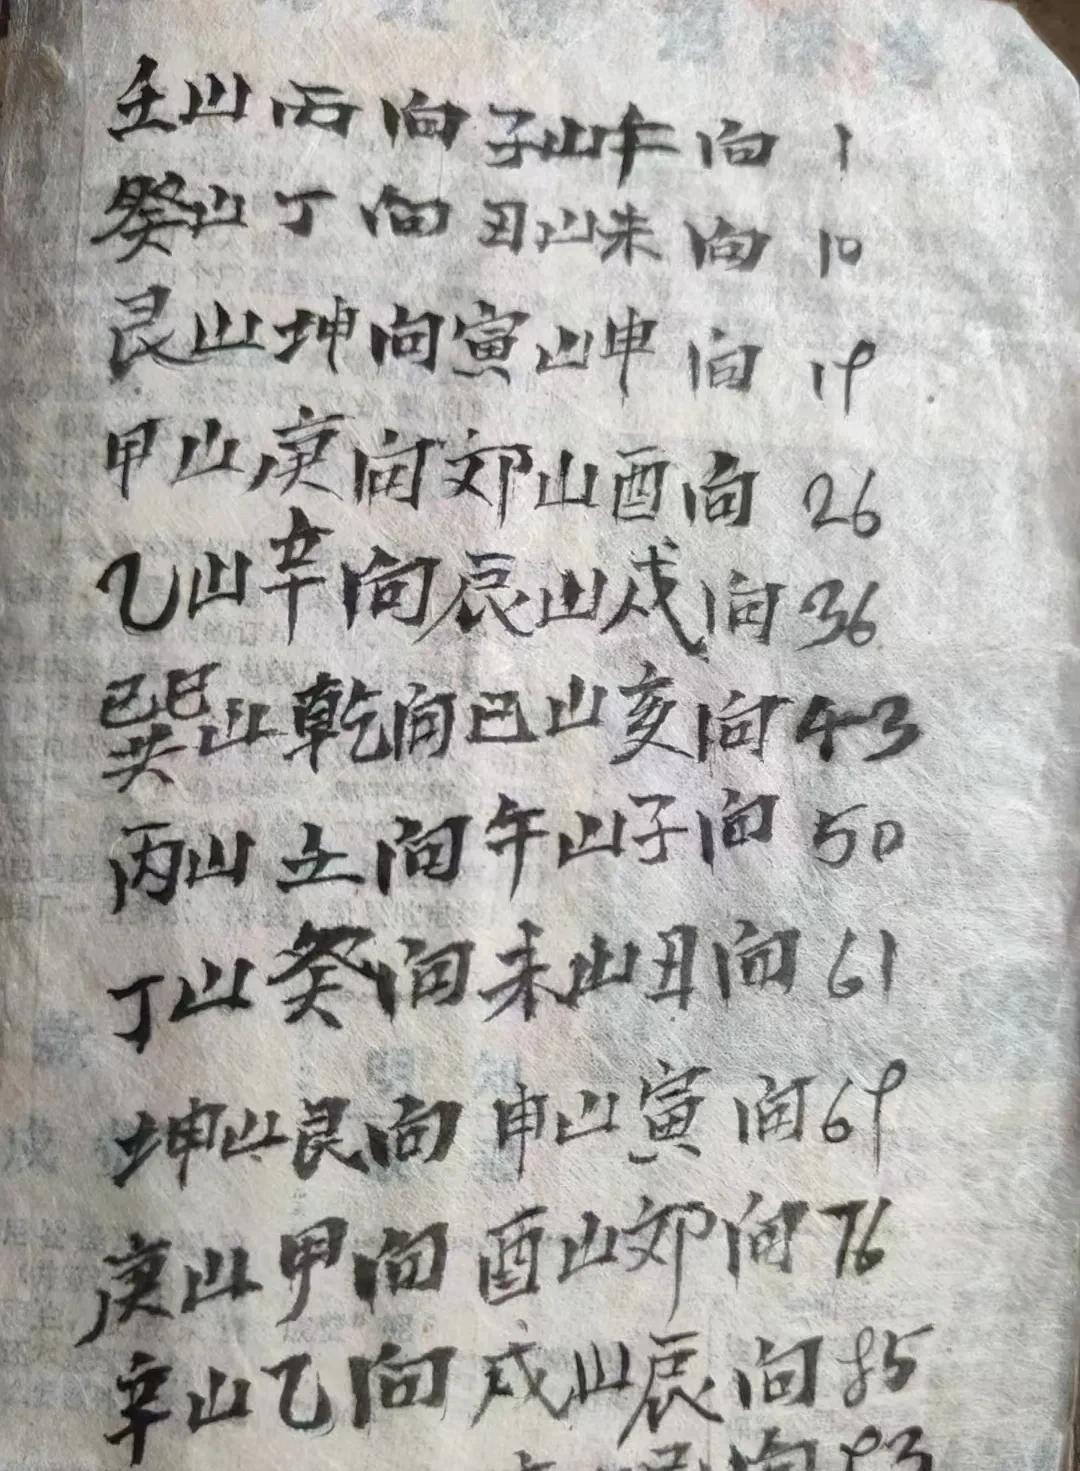 壬山丙向子山午向 1
癸山丁向丑山未向 10
艮山坤向寅山申向 19
甲山庚向郊山酉向 26
乙山辛向辰山戌向 36
巽山乾向巳山亥向 43
丙山壬向午山子向 50
丁山癸向未山丑向 61
坤山艮向申山寅向 69
庚山甲向酉山郊向 76
辛山乙向戌山辰向 85
向 93